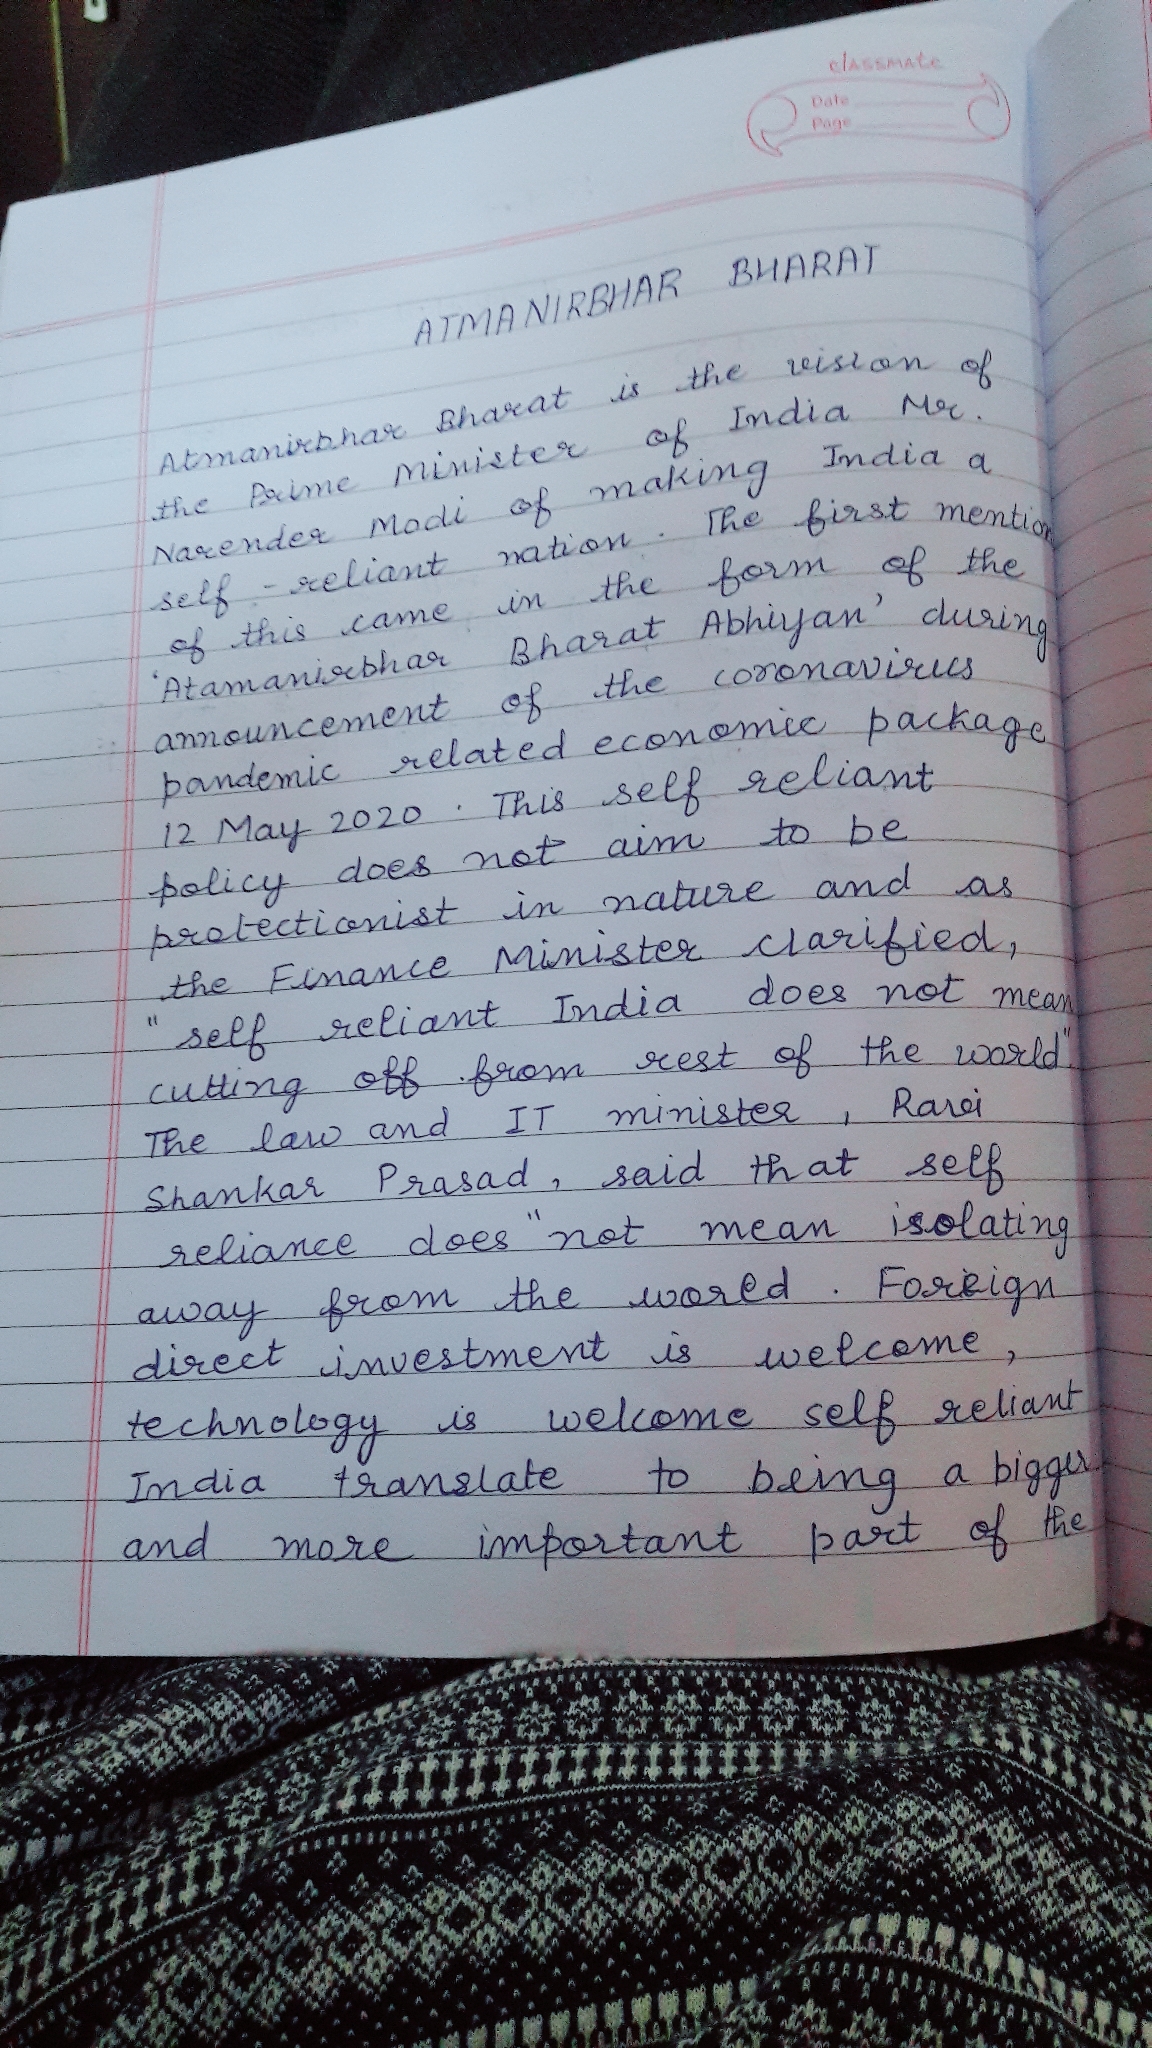 classmate
Date
Page
ATMANIRBHAR BHARAT
Atmanirbhar Bharat is the vision of
the Prime Minister of India Mr.
Narender Modi of making India a
self-reliant nation. The first mention
of this came in the form of the
'Atamanirbhar Bharat Abhiyan' during
announcement of the coronavirus
pandemic related economic package
12 May 2020. This self reliant
policy does not aim to be
protectionist in nature and as
the Finance Minister clarified,
"self reliant India does not mean
cutting off from rest of the world".
The law and IT minister, Ravi
Shankar Prasad, said that self
reliance does "not mean isolating
away from the world. Foreign
direct investment is welcome,
technology is welcome self reliant
India translate to being a bigger
and more important part of the